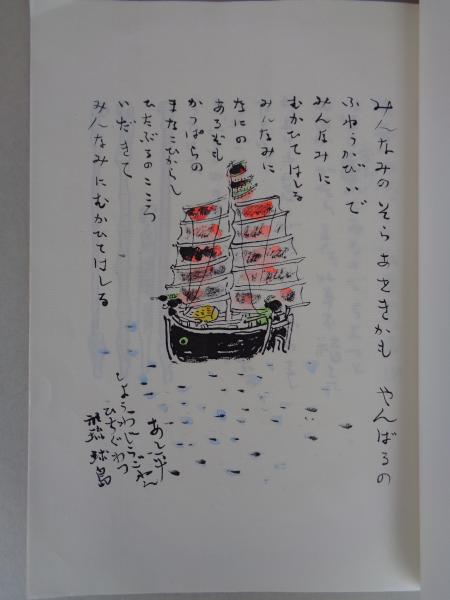 みんなみのそらあをきかも　やんばるの
ふねうかびいで
みんなみに
むかひてはしる
みんなみに
なにの
あるむも
かつぱらの
まなこひからし
ひたぶるのこころ
いだきて
みんなみにむかひてはしる
しようわじうごねん
ひちぐわつ
琉球島